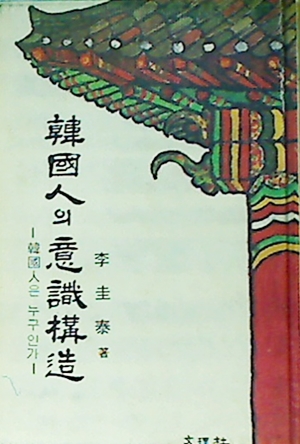 韓國人의 意識構造
―韓國人은 누구인가―
李圭泰 著
文理社